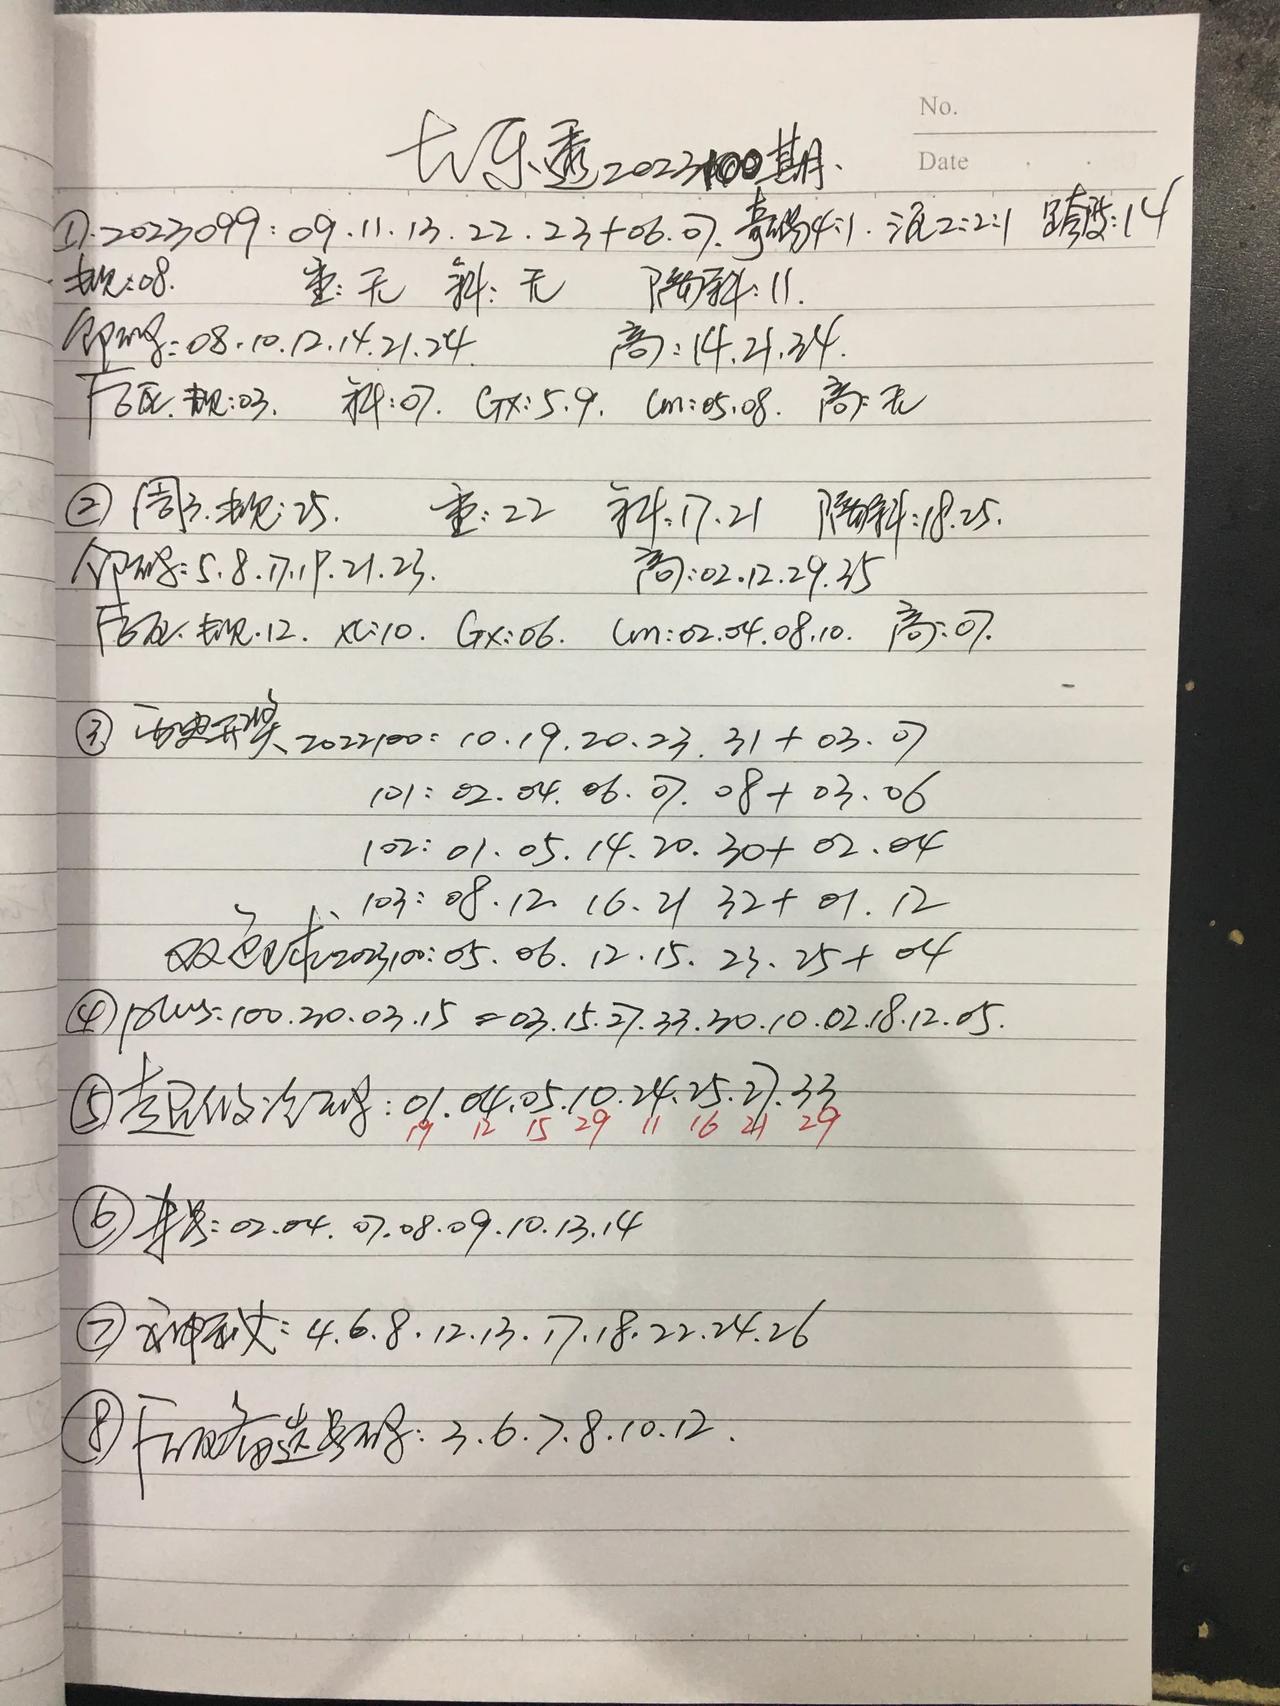 No.
Date
大乐透2023100期.
①.2023099:09.11.13.22.23+06.07.奇偶4:1.浪2:2:1 跨度:14
规:08. 重:无 斜:无 隔斜:11.
邻码:08.10.12.14.21.24 高:14.21.34.
后区.规:03. 斜:07. Gx:5.9. Lm:05.08. 高:无
② 周3.规:25. 重:22 斜:17.21 隔斜:18.25.
邻码:5.8.17.19.21.23. 高:02.12.29.35
后区.规.12. XL:10. Gx:06. Lm:02.04.08.10. 高:07.
③ 历史开奖、2022100: 10.19.20.23.31+03.07
101: 02.04.06.07.08+03.06
102: 01.05.14.20.30+02.04
103: 08.12.16.21 32+01.12
双色球2023100:05.06.12.15.23.25+04
④plus:100.30.03.15=03.15.27.33.30.10.02.18.12.05.
⑤冷码:01.04.05.10.24.25.27.33
19 12 15 29 11 16 21 29
⑥:02.04.07.08.09.10.13.14
⑦:4.6.8.12.13.17.18.22.24.26
⑧后区备选号码:3.6.7.8.10.12.